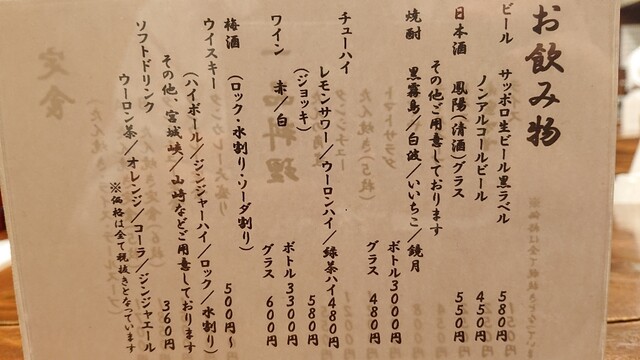 お飲み物
ビール サッポロ生ビール黒ラベル 580円
ノンアルコールビール 450円
日本酒 鳳陽(清酒)グラス 550円
その他ご用意しております
焼酎 黒霧島/白波/いいちこ/鏡月
ボトル3000円
グラス 480円
チューハイ レモンサワー/ウーロンハイ/緑茶ハイ480円
(ジョッキ) 580円
ワイン 赤/白 ボトル3300円
グラス 600円
梅酒 (ロック・水割り・ソーダ割り) 500円~
ウイスキー (ハイボール/ジンジャーハイ/ロック/水割り)
その他、宮城峡/山崎などご用意しております
360円
ソフトドリンク ウーロン茶/オレンジ/コーラ/ジンジャエール
※価格は全て税抜きとなっています
定食